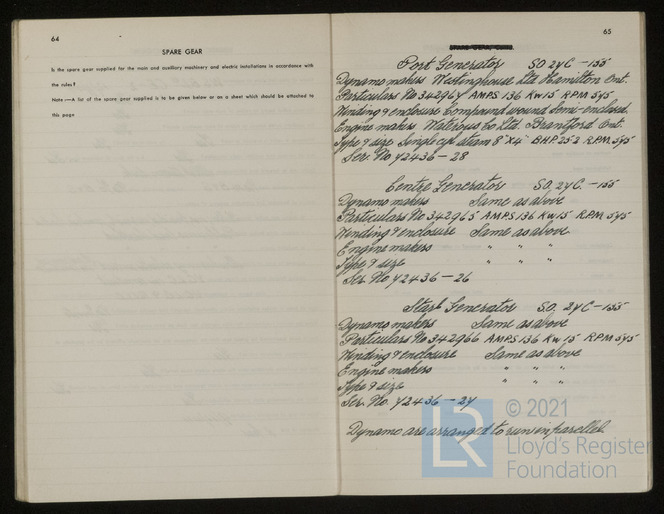 64
SPARE GEAR
Is the spare gear supplied for the main and auxiliary machinery and electric installations in accordance with
the rules?
Note—A list of the spare gear supplied is to be given below or on a sheet which should be attached to
this page
65
Port Generator SO 2YC - 155
Dynamo makers Westinghouse Ltd Hamilton Ont.
Particulars No 342964 AMPS 136 KW 15 RPM 545
Winding & enclosure Compound wound Semi-enclosed
Engine makers Waterous Co Ltd. Brantford Ont.
Type & size Single cyl steam 8"x4" BHP 25.2 R.P.M. 545
Ser. No Y2436 - 28
Centre Generator S.O. 2YC. - 155
Dynamo makers Same as above
Particulars No 342965 AMPS 136 KW 15 RPM 545
Winding & enclosure Same as above
Engine makers " " "
Type & size " " "
Ser. No Y2436 - 26
Starb Generator S.O. 2YC - 155
Dynamo makers Same as above
Particulars No 342966 AMPS 136 KW 15 RPM 545
Winding & enclosure Same as above
Engine makers " " "
Type & size " " "
Ser. No. Y2436 - 24
Dynamo are arranged to run in parallel
© 2021
Lloyd's Register
Foundation
LR